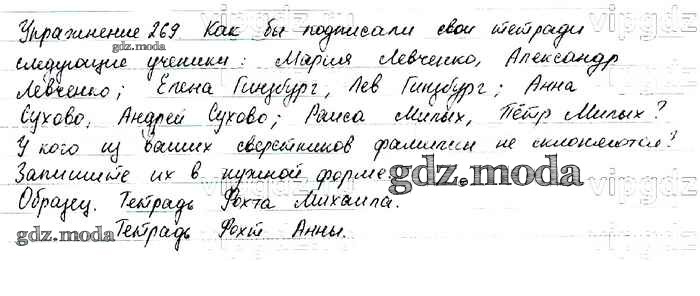 Упражнение 269 Как бы подписали свои тетради
следующие ученики: Мария Левченко, Александр
Левченко; Елена Гинзбург, Лев Гинзбург; Анна
Сухово, Андрей Сухово; Раиса Милых, Пётр Милых?
У кого из ваших сверстников фамилии не склоняются?
Запишите их в нужной форме.
Образец. Тетрадь Рохта Михаила.
Тетрадь Рохт Анны.
gdz.moda
gdz.moda
gdz.moda
vipgdz
vipgdz
vipgdz
vipgdz